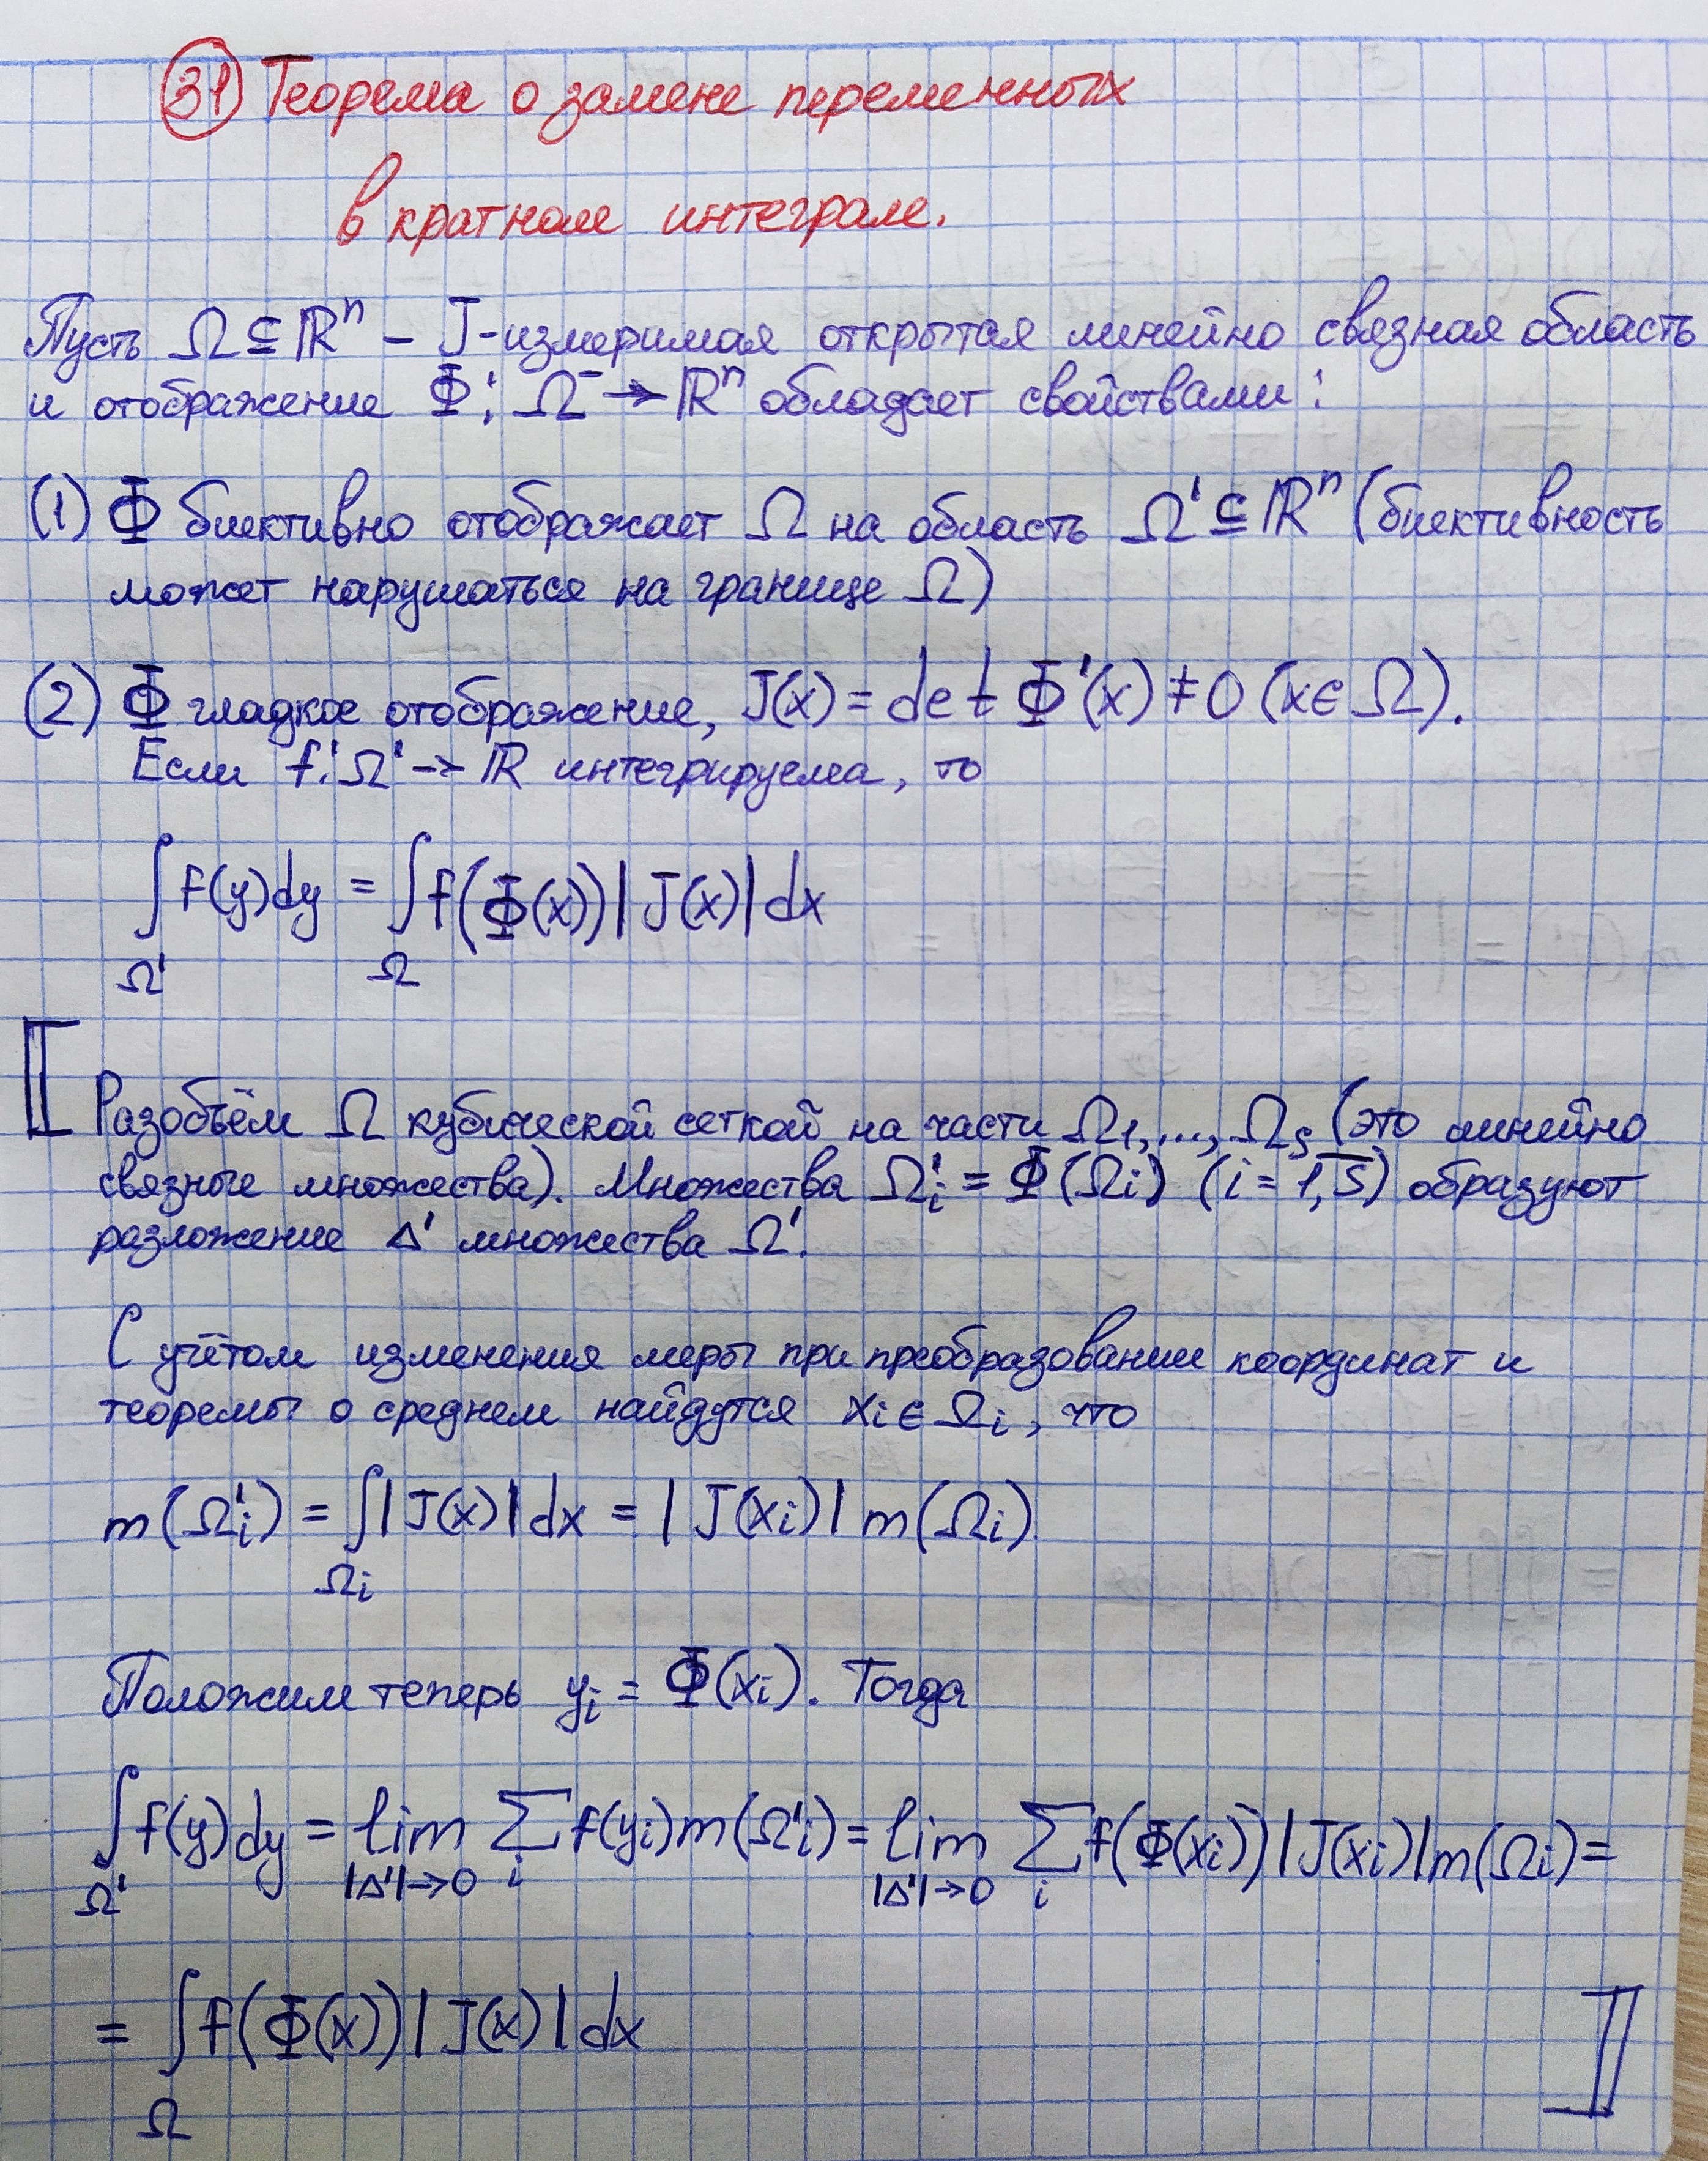 31 Теорема о замене переменных
в кратном интеграле.
Пусть Ω ⊆ ℝⁿ – J-измеримая открытая линейно связная область
и отображение Φ: Ω⁻ → ℝⁿ обладает свойствами:
(1) Φ биективно отображает Ω на область Ω' ⊆ ℝⁿ (биективность
может нарушаться на границе Ω)
(2) Φ гладкое отображение, J(x) = det Φ'(x) ≠ 0 (x ∈ Ω).
Если f: Ω' → ℝ интегрируема, то
∫_Ω' f(y)dy = ∫_Ω f(Φ(x))|J(x)|dx
[ Разобьём Ω кубической сеткой на части Ω₁, ..., Ω_S (это линейно
связные множества). Множества Ω'_i = Φ(Ω_i) (i = 1,S) образуют
разложение Δ' множества Ω'.
С учётом изменения меры при преобразовании координат и
теоремы о среднем найдутся x_i ∈ Ω_i, что
m(Ω'_i) = ∫_Ω_i |J(x)|dx = |J(x_i)| m(Ω_i)
Положим теперь y_i = Φ(x_i). Тогда
∫_Ω' f(y)dy = lim_{|Δ'|→0} Σ_i f(y_i)m(Ω'_i) = lim_{|Δ'|→0} Σ_i f(Φ(x_i))|J(x_i)|m(Ω_i) =
= ∫_Ω f(Φ(x))|J(x)|dx ]